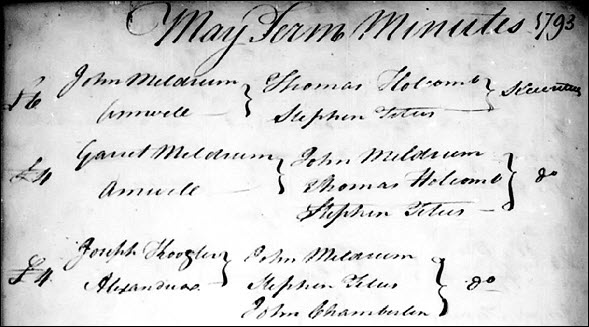 May Term Minutes 1793
£6 John Meldrum } Thomas Holcomb } Securities
Amwell Stephen Titus
£4 Garret Meldrum } John Meldrum } do
Amwell Thomas Holcomb
Stephen Titus
£4 Joseph } John Meldrum } do
Alexandria Stephen Titus
John Chamberlin